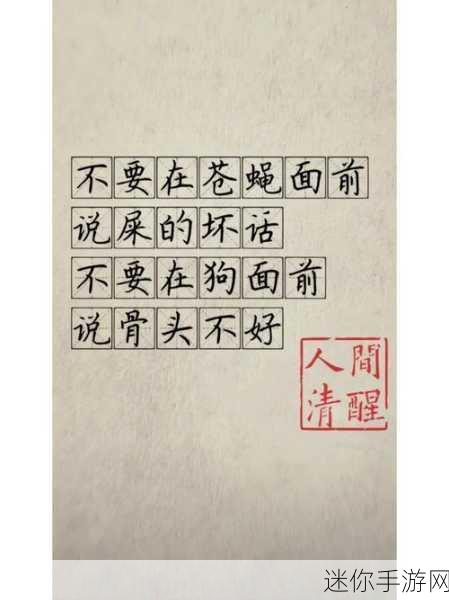 不要在苍蝇面前
说屎的坏话
不要在狗面前
说骨头不好
人間
清醒
迷你手游网